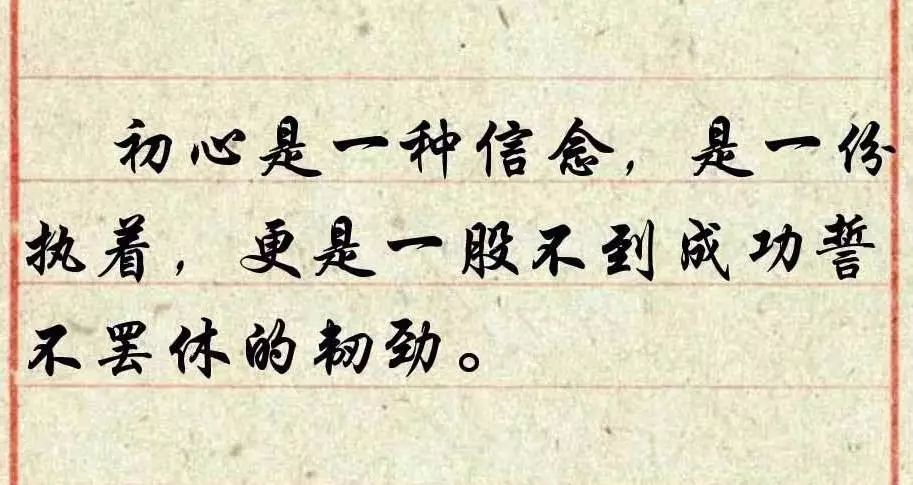 初心是一种信念，是一份
执着，更是一股不到成功誓
不罢休的韧劲。